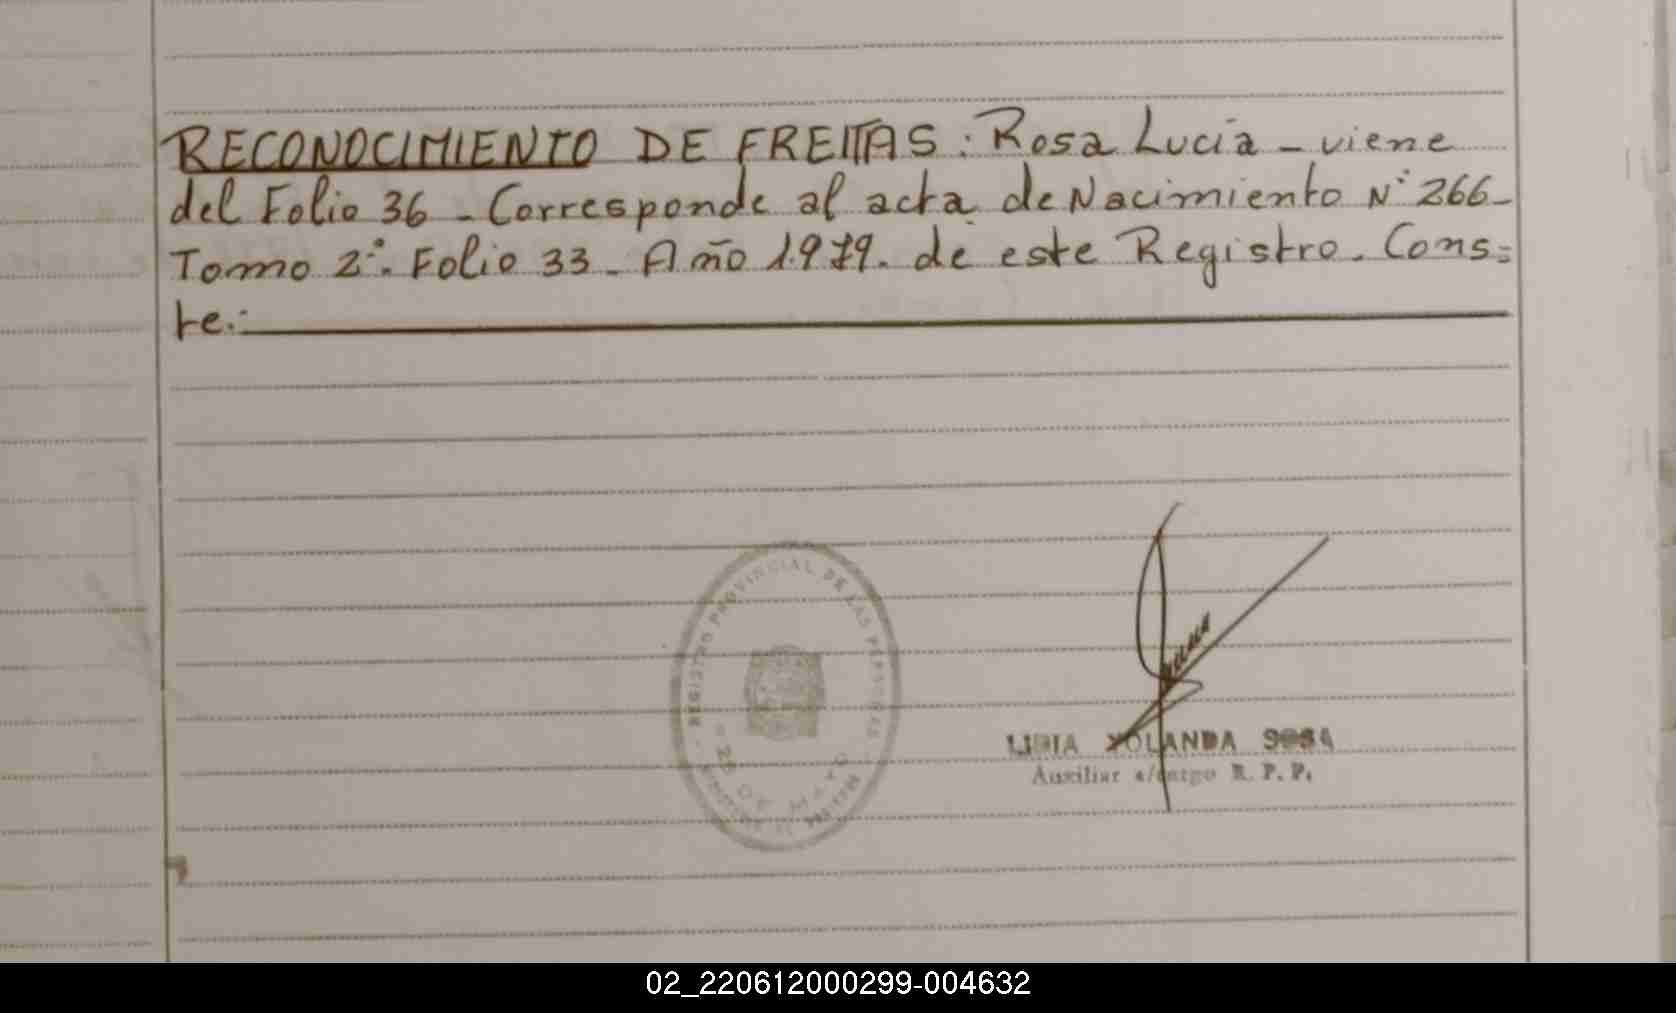 RECONOCIMIENTO DE FREITAS: Rosa Lucía - viene
del Folio 36 - Corresponde al acta de Nacimiento Nº 266-
Tomo 2º. Folio 33 - Año 1.979. de este Registro. Cons=
te.:
REGISTRO PROVINCIAL DE LAS PERSONAS
- 25 DE MAYO
LIDIA YOLANDA SOSA
Auxiliar a/cargo R. P. P.
02_220612000299-004632